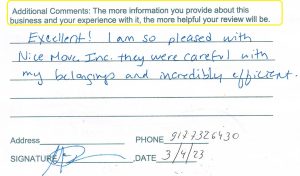 Additional Comments: The more information you provide about this
business and your experience with it, the more helpful your review will be.
Excellent! I am so pleased with
Nice Move Inc. they were careful with
my belongings and incredibly efficient.
Address
PHONE 9177326430
SIGNATURE DATE 3/4/23